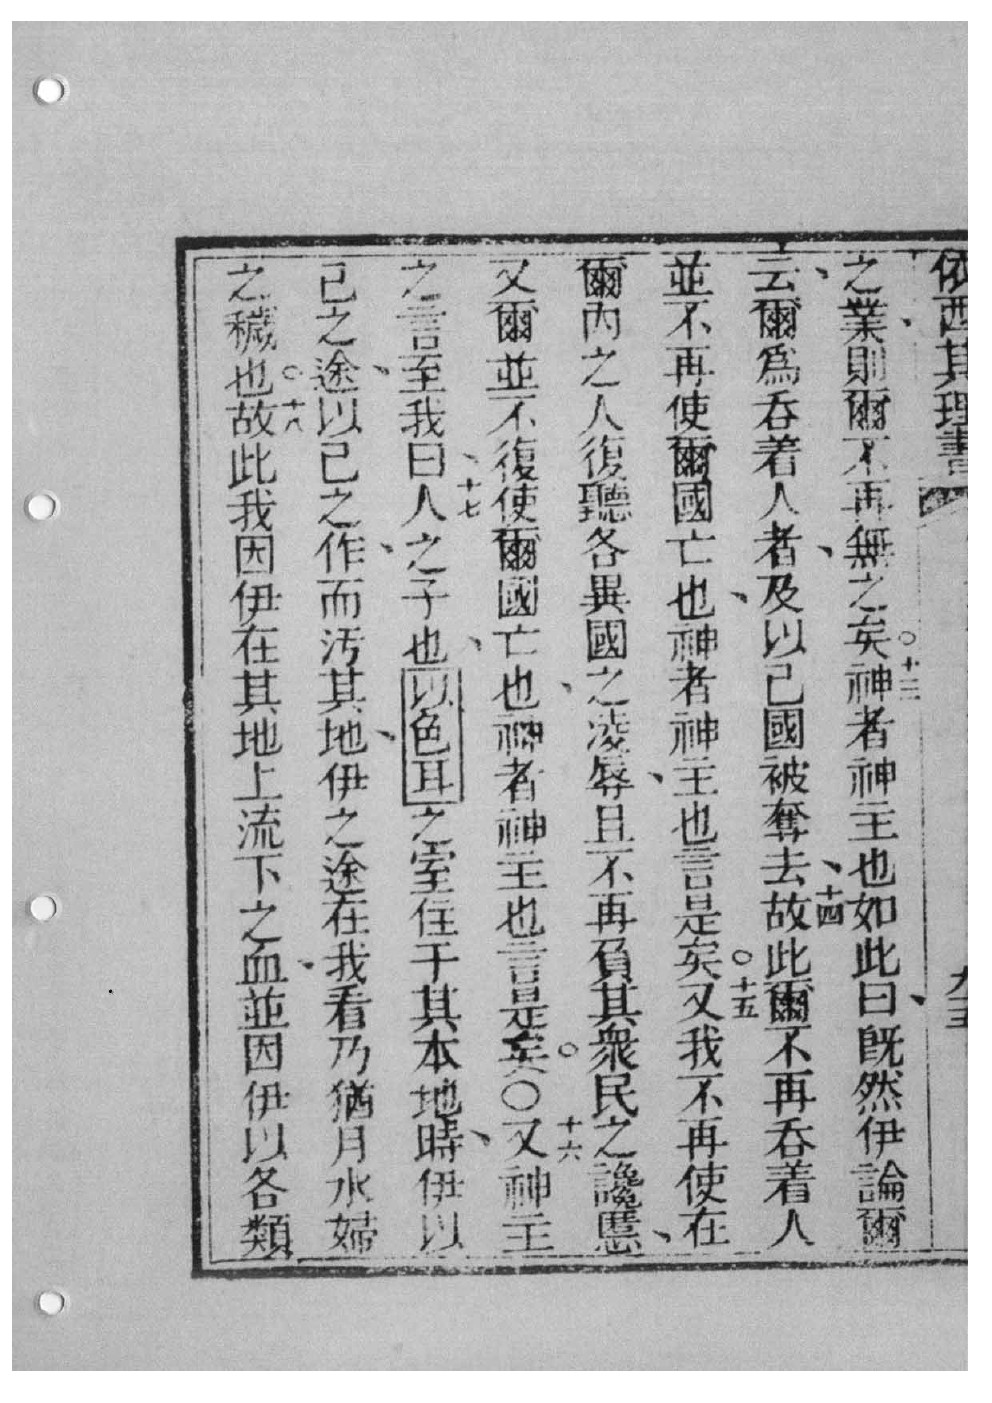 依西其理書
之業則爾不再無之矣○十三神者神主也如此曰、旣然伊論爾
云、爾爲吞着人者、及以己國被奪去、十四故此爾不再吞着人
並不再使爾國亡也、神者神主也言是矣○十五又我不再使在
爾內之人復聽各異國之凌辱、且不再負其衆民之讒慝、
又爾並不復使爾國亡也、神者神主也言是矣○○十六又神主
之言至我曰、十七人之子也、以色耳之室住于其本地時、伊以
己之途、以己之作、而污其地、伊之途在我看乃猶月水婦
之穢也○十八故此我因伊在其地上流下之血、並因伊以各類